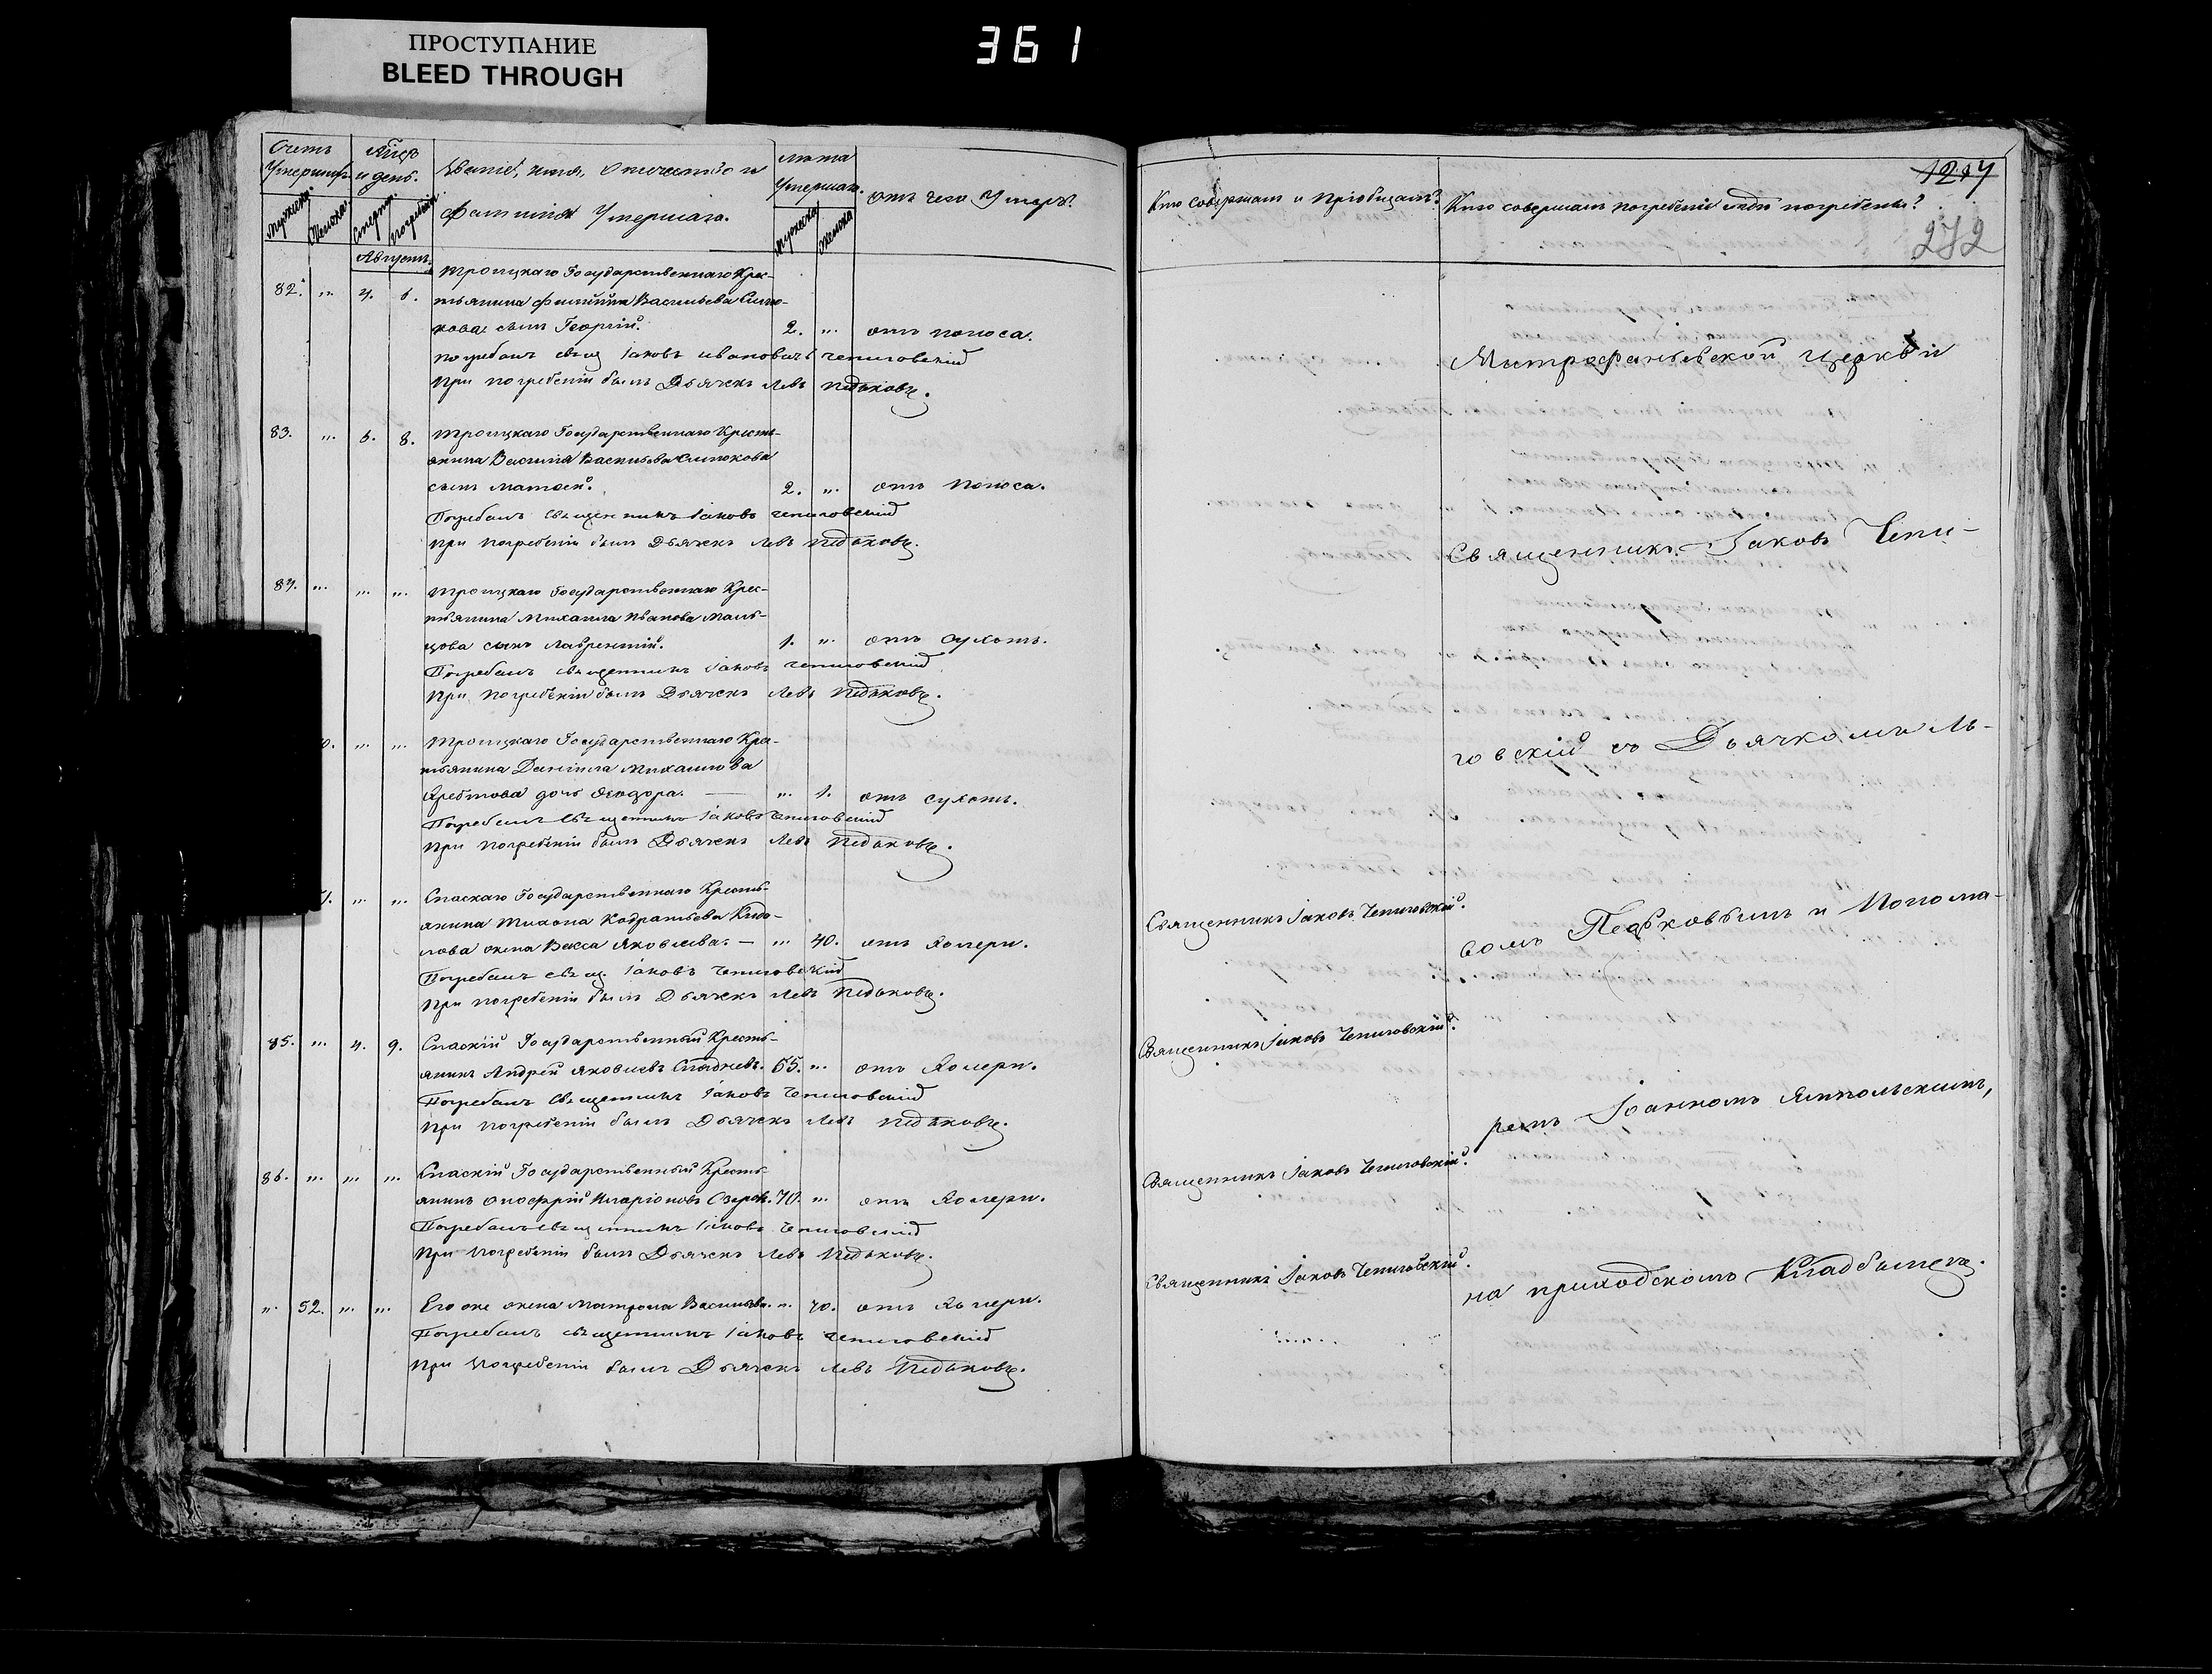 ПРОСТУПАНИЕ
BLEED THROUGH
361
Счетъ Умершихъ
Мѣсяцъ и день.
Званіе, имя, отчество и
фамилія Умершаго.
Лѣта Умершаго.
отъ чего Умеръ?
Мужеска Женска Смерти Погребенія
Мужеска Женска
Августъ.
82. „ 4. 6. Троицкаго Государственнаго Крес-
тьянина Филиппа Васильева
кова сынъ Георгій. 2. „ отъ поноса.
погребалъ свящ Іаковъ Ивановичъ Чепиговскій
При погребеніи былъ Дьячекъ Левъ Педьковъ.
83. „ 6. 8. Троицкаго Государственнаго Кресть-
янина Василія Васильева
сынъ Матѳей. 2. „ отъ поноса.
Погребалъ Священникъ Іаковъ Чепиговскій
При погребеніи былъ Дьячекъ Левъ Педьковъ.
84. „ „ „ Троицкаго Государственнаго Крес-
тьянина Михаила Иванова Маль-
цова сынъ Лаврентій. 1. „ отъ сухотъ.
Погребалъ священникъ Іаковъ Чепиговскій
При погребеніи былъ Дьячекъ Левъ Педьковъ.
„ „ Троицкаго Государственнаго Крес-
тьянина Даніила Михайлова
дочь Ѳеодора. — „ 1. отъ сухотъ.
Погребалъ Священникъ Іаковъ Чепиговскій
При погребеніи былъ Дьячекъ Левъ Педьковъ.
„ „ Спаскаго Государственнаго Кресть-
янина Тихона Кодратьева
лова жена Васса Яковлева. — „ 40. отъ холеры.
Погребалъ свящ. Іаковъ Чепиговскій
При погребеніи былъ Дьячекъ Левъ Педьковъ.
85. „ 4. 9. Спаскій Государственный Кресть-
янинъ Андрей Яковлевъ 65. „ отъ Холеры.
Погребалъ Священникъ Іаковъ Чепиговскій
При погребеніи былъ Дьячекъ Левъ Педьковъ.
86. „ „ „ Спаскій Государственный Кресть-
янинъ Онофрій Иларіоновъ 70. „ отъ Холеры.
Погребалъ священникъ Іаковъ Чепиговскій
При погребеніи былъ Дьячекъ Левъ Педьковъ.
„ 52. „ „ Его же жена Матрона Васильева. „ 70. отъ Холеры.
Погребалъ священникъ Іаковъ Чепиговскій
При погребеніи былъ Дьячекъ Левъ Педьковъ.
1217
272
Кто совершалъ и пріобщалъ?
Кто совершалъ погребеніе и гдѣ погребены?
Митрофаньевской Церкви
Священникъ Іаковъ Чепи-
говскій съ Дьячкомъ Ль-
вомъ Педьковымъ и Понома-
ремъ Іоанномъ Ямпольскимъ,
на приходскомъ Кладбищѣ.
Священникъ Іаковъ Чепиговскій.
Священникъ Іаковъ Чепиговскій.
Священникъ Іаковъ Чепиговскій.
Священникъ Іаковъ Чепиговскій.